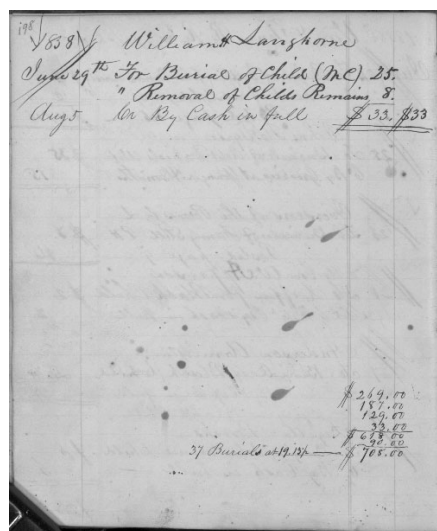 198
1858 William H Langhorne
June 29th For Burial of Child (MC) 25.
" Removal of Childs Remains 8.
Aug 5 Cr By Cash in full $33. $33
$269.00
187.00
129.00
33.00
$618.00
90.00
37 Burials at 19.13½ — $708.00